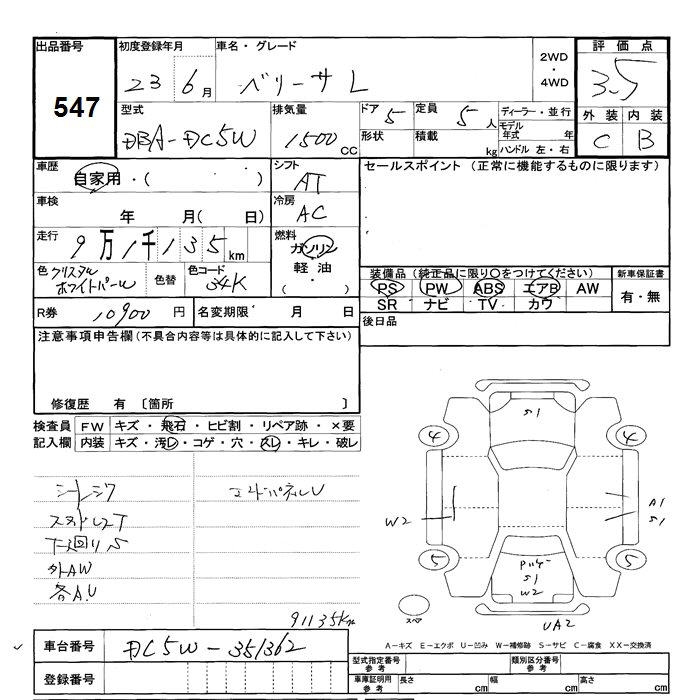 出品番号
547
初度登録年月
23 6月
車名・グレード
ベリーサ L
2WD
・
4WD
評価点
3.5
型式
DBA-DC5W
排気量
1500cc
ドア 5
形状
定員 5人
積載 kg
ディーラー・並行
モデル年式 年
ハンドル 左・右
外装 内装
C B
車歴
自家用・( )
シフト
AT
セールスポイント (正常に機能するものに限ります)
車検
年 月( 日)
冷房
AC
走行
9万1千135km
燃料
ガソリン
軽油
( ・ )
色 クリスタル
ホワイトパール
色替
色コード
34K
装備品(純正品に限り〇をつけてください)
PS PW ABS エアB AW
SR ナビ TV カワ
新車保証書
有・無
R券 10900円
名変期限 月 日
後日品
注意事項申告欄(不具合内容等は具体的に記入して下さい)
修復歴 有 〔箇所 〕
検査員
記入欄
FW キズ・飛石・ヒビ割・リペア跡・×要
内装 キズ・汚レ・コゲ・穴・スレ・キレ・破レ
シートシワ
下廻りS
外AW
各A.U
91135km
S1
4 4
W2
A1
S1
5 5
S1
W2
UA2
スペア
車台番号 DC5W-351362
登録番号
A-キズ E-エクボ U-凹み W-補修跡 S-サビ C-腐食 XX-交換済
型式指定番号
参考
類別区分番号
参考
車庫証明用
参考
長さ cm 幅 cm 高さ cm